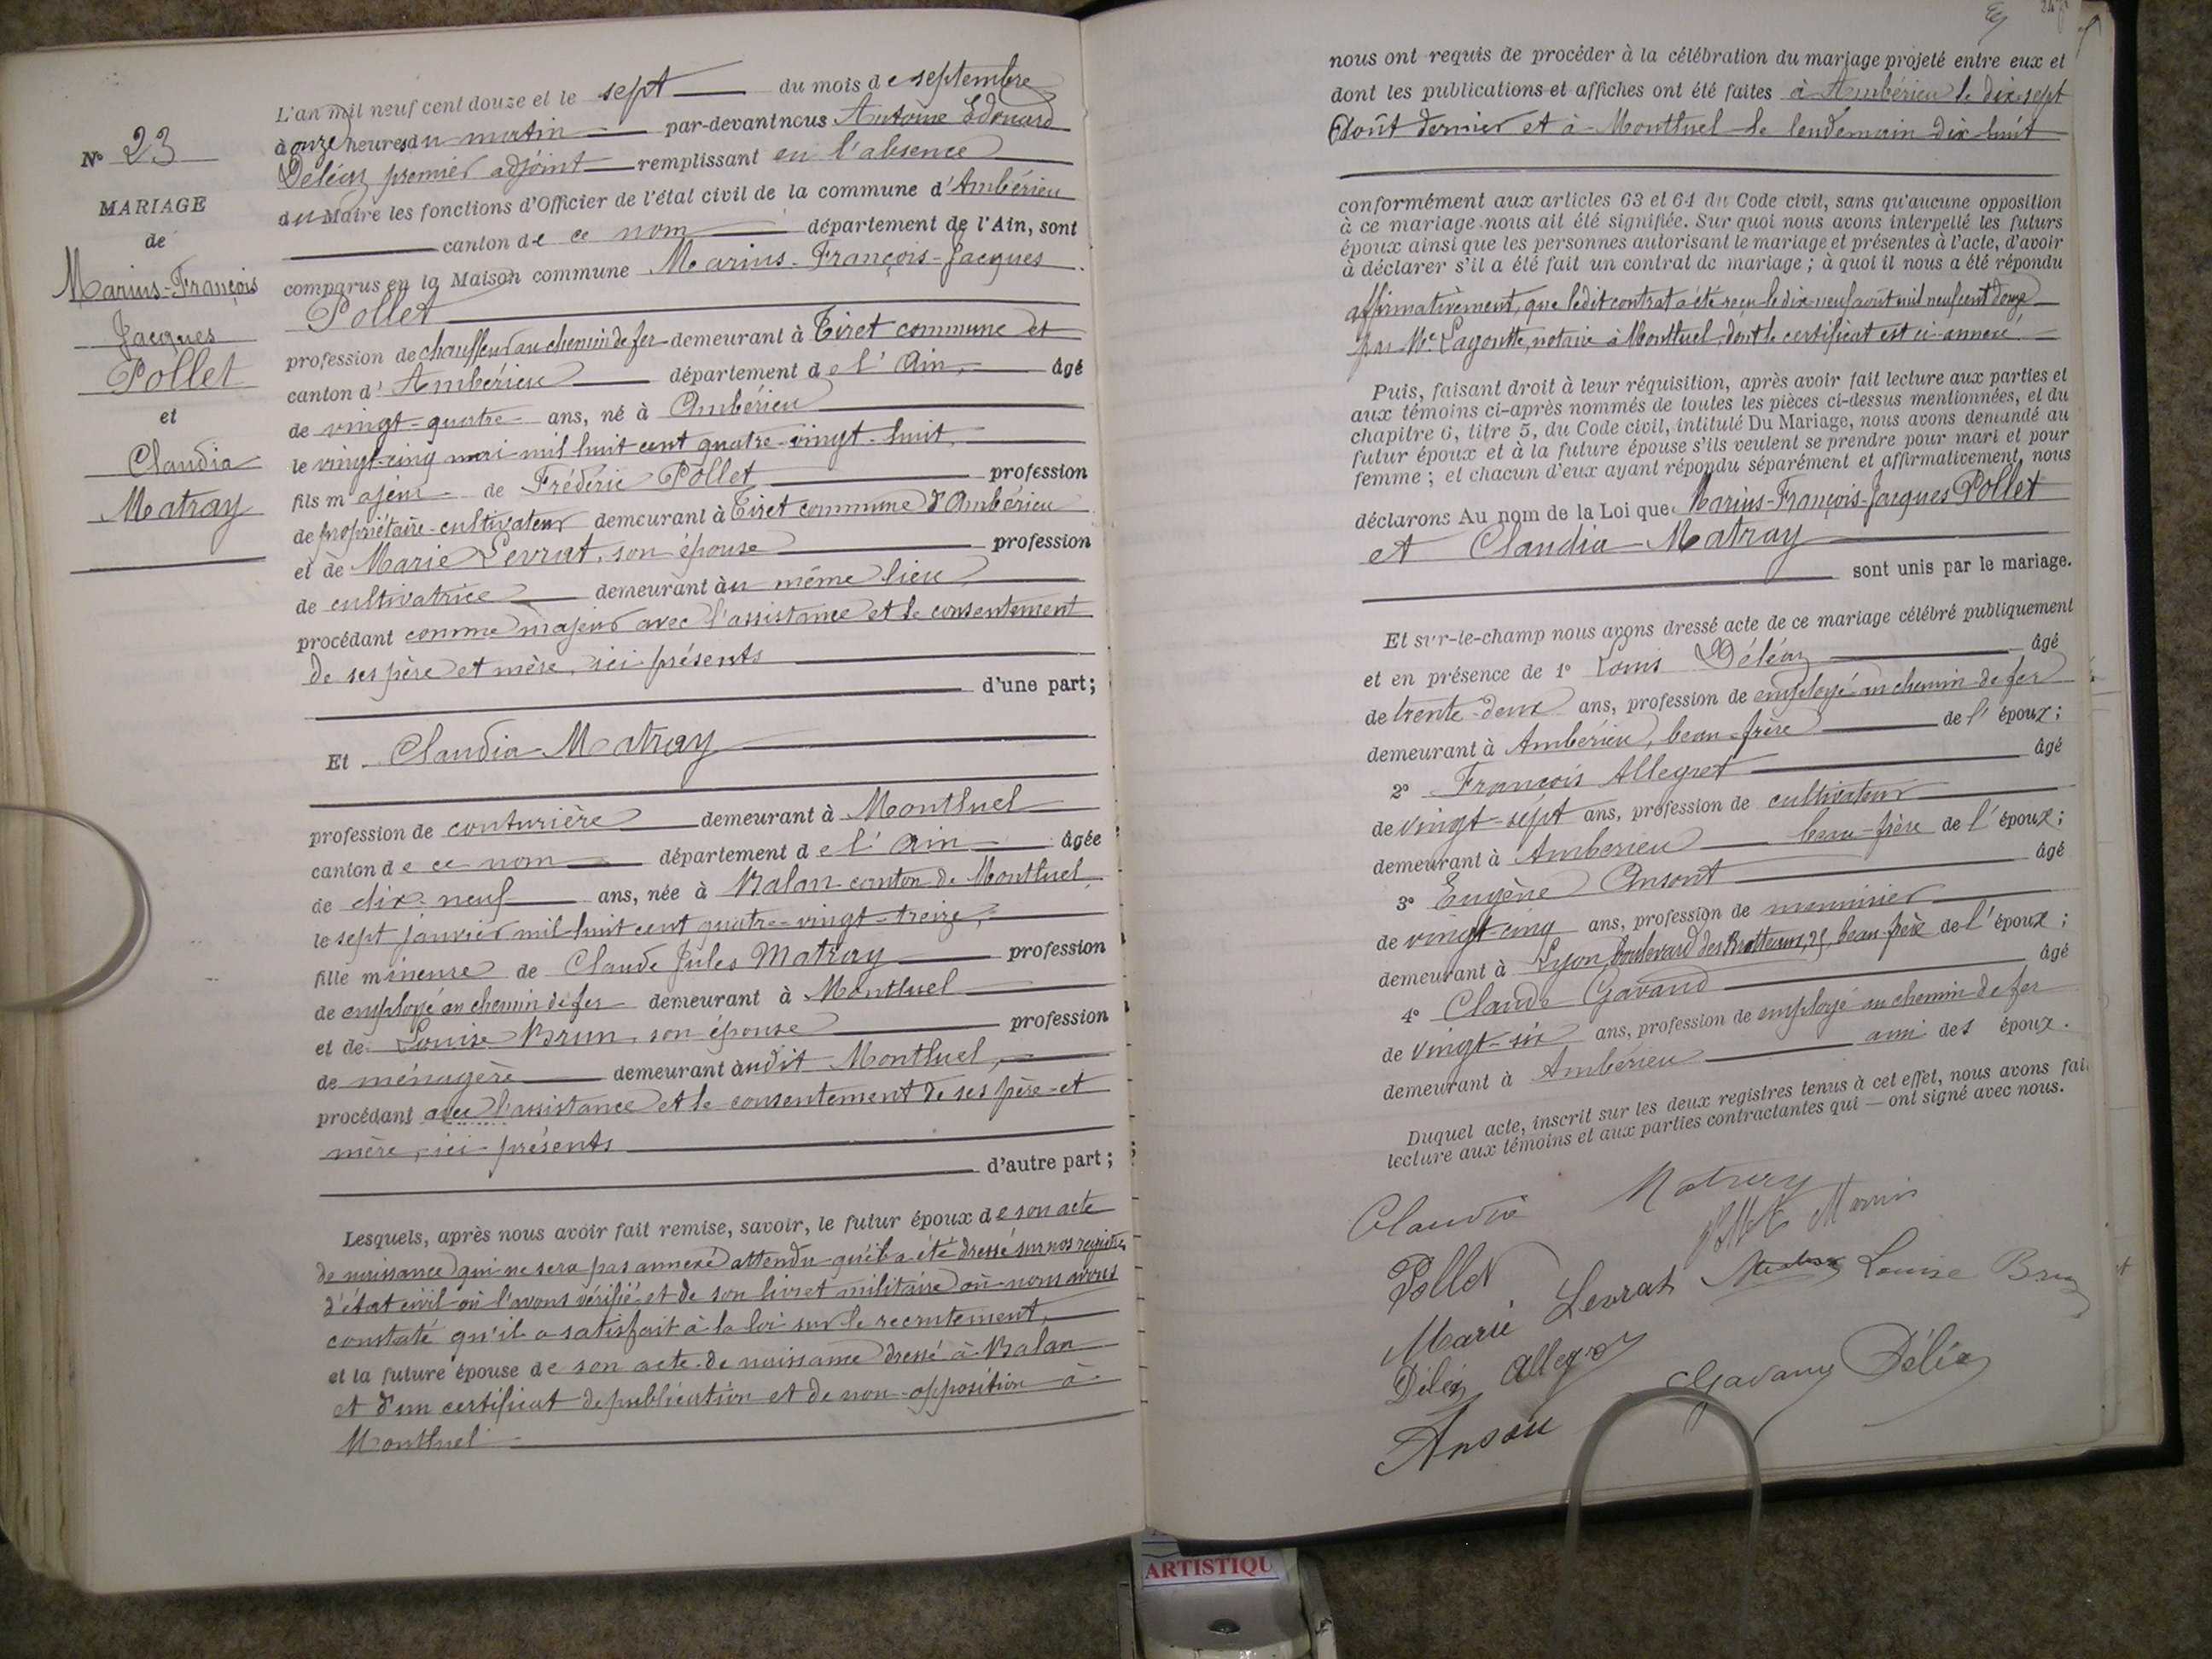 N° 23
MARIAGE
de
Marius-François
Jacques
Pollet
et
Claudia
Matray
L'an mil neuf cent douze et le sept du mois de septembre
à onze heures du matin par-devant nous Antoine Edouard
Déléaz premier adjoint remplissant en l'absence
du Maire les fonctions d'Officier de l'état civil de la commune d'Ambérieu
canton de ce nom département de l'Ain, sont
comparus en la Maison commune Marius-François-Jacques
Pollet
profession de chauffeur au chemin de fer demeurant à Tiret commune et
canton d'Ambérieu département de l'Ain, âgé
de vingt-quatre ans, né à Ambérieu
le vingt-cinq mai mil huit cent quatre-vingt-huit,
fils majeur de Frédéric Pollet profession
de propriétaire-cultivateur demeurant à Tiret commune d'Ambérieu
et de Marie Levrat, son épouse profession
de cultivatrice demeurant au même lieu
procédant comme majeur avec l'assistance et le consentement
de ses père et mère, ici présents
d'une part;
Et Claudia Matray
profession de couturière demeurant à Montluel
canton de ce nom département de l'Ain âgée
de dix-neuf ans, née à Balan canton de Montluel
le sept janvier mil huit cent quatre-vingt-treize,
fille mineure de Claude Jules Matray profession
de employé au chemin de fer demeurant à Montluel
et de Louise Brun, son épouse profession
de ménagère demeurant audit Montluel,
procédant avec l'assistance et le consentement de ses père et
mère, ici présents
d'autre part;
Lesquels, après nous avoir fait remise, savoir, le futur époux de son acte
de naissance qui ne sera pas annexé attendu qu'il a été dressé sur nos registres
d'état civil où l'avons vérifié et de son livret militaire où nous avons
constaté qu'il a satisfait à la loi sur le recrutement,
et la future épouse de son acte de naissance dressé à Balan
et d'un certificat de publication et de non-opposition à
Montluel
nous ont requis de procéder à la célébration du mariage projeté entre eux et
dont les publications et affiches ont été faites à Ambérieu le dix-sept
Août dernier et à Montluel le lendemain dix huit
conformément aux articles 63 et 64 du Code civil, sans qu'aucune opposition
à ce mariage nous ait été signifiée. Sur quoi nous avons interpellé les futurs
époux ainsi que les personnes autorisant le mariage et présentes à l'acte, d'avoir
à déclarer s'il a été fait un contrat de mariage; à quoi il nous a été répondu
affirmativement, que ledit contrat a été reçu le dix-neuf août mil neuf cent douze
par Me Lagoutte, notaire à Montluel dont le certificat est ci-annexé.
Puis, faisant droit à leur réquisition, après avoir fait lecture aux parties et
aux témoins ci-après nommés de toutes les pièces ci-dessus mentionnées, et du
chapitre 6, titre 5, du Code civil, intitulé Du Mariage, nous avons demandé au
futur époux et à la future épouse s'ils veulent se prendre pour mari et pour
femme; et chacun d'eux ayant répondu séparément et affirmativement, nous
déclarons Au nom de la Loi que Marius-François-Jacques Pollet
et Claudia Matray
sont unis par le mariage.
Et sur-le-champ nous avons dressé acte de ce mariage célébré publiquement
et en présence de 1° Louis Déléaz âgé
de trente-deux ans, profession de employé au chemin de fer
demeurant à Ambérieu, beau-frère de l'époux;
2° François Allegret âgé
de vingt-sept ans, profession de cultivateur
demeurant à Ambérieu beau-frère de l'époux;
3° Eugène Ansont âgé
de vingt-cinq ans, profession de menuisier
demeurant à Lyon, boulevard des Brotteaux, 25, beau-frère de l'époux;
4° Claude Gavand âgé
de vingt-six ans, profession de employé au chemin de fer
demeurant à Ambérieu ami des époux.
Duquel acte, inscrit sur les deux registres tenus à cet effet, nous avons fait
lecture aux témoins et aux parties contractantes qui ont signé avec nous.
Claudia Matray
Pollet Marius
Pollet
Marie Levrat Louise Brun
Déléaz Allegret
Gavand Déléaz
Ansou
ARTISTIQU